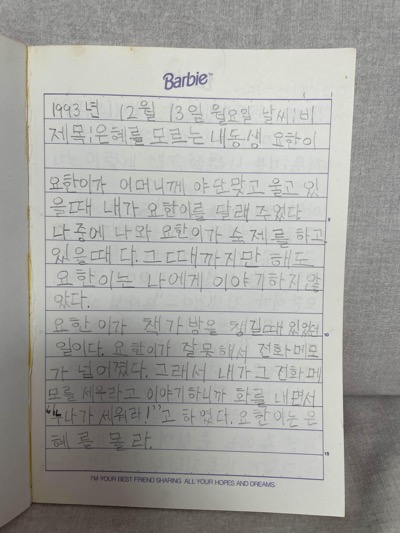 Barbie™
1993년 12월 13일 월요일 날씨:비
제목:은혜를 모르는 내동생 요한이
요한이가 어머니께 야단맞고 울고 있
을때 내가 요한이를 달래 주었다
나중에 나와 요한이가 숙제를 하고
있을때 다. 그때까지만 해도
요한이는 나에게 이야기하지 않
았다.
요한이가 책가방을 챙길때 있었던
일이다. 요한이가 잘못해서 전화메모
가 넘어졌다. 그래서 내가 그 전화메
모를 세우라고 이야기하니까 화를 내면서
"누나가 세워라!"고 하였다. 요한이는 은
혜를 몰라.
I'M YOUR BEST FRIEND SHARING ALL YOUR HOPES AND DREAMS